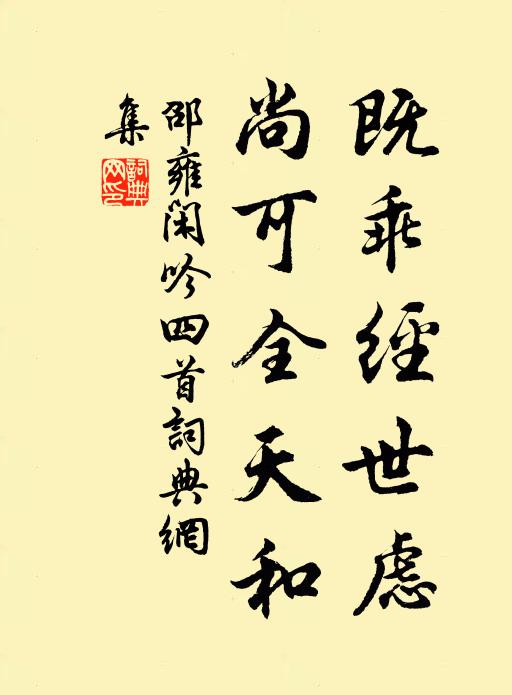 既乖經世慮
尚可全天和
邵雍閑吟四首詞典網
集
詞典
网印